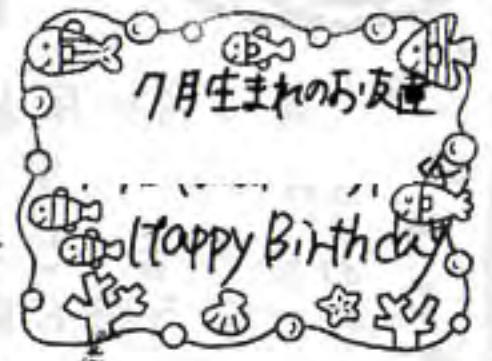 7月生まれのお友達
Happy Birthday